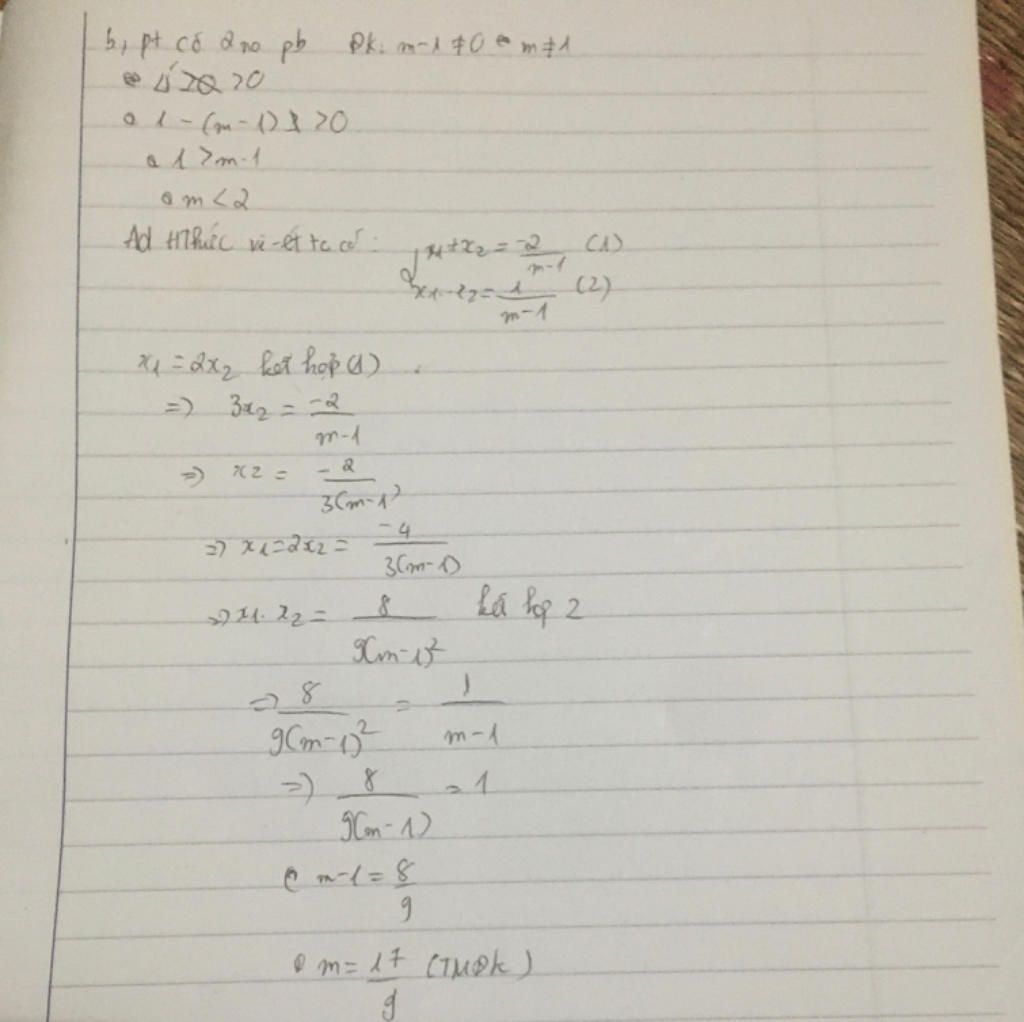 b, pt có 2 no pb Đk: m-1 ≠ 0 ⇔ m ≠ 1
⇔ Δ' > 0
⇔ 1 - (m-1) > 0
⇔ 1 > m-1
⇔ m < 2
Ad HThức vi-ét ta có:
{ x1 + x2 = -2/(m-1) (1)
x1 . x2 = 1/(m-1) (2)
x1 = 2x2 kết hợp (1)
=> 3x2 = -2/(m-1)
=> x2 = -2/(3(m-1))
=> x1 = 2x2 = -4/(3(m-1))
=> x1 . x2 = 8/(9(m-1)²) kết hợp 2
=> 8/(9(m-1)²) = 1/(m-1)
=> 8/(9(m-1)) = 1
⇔ m-1 = 8/9
⇔ m = 17/9 (TMĐK)